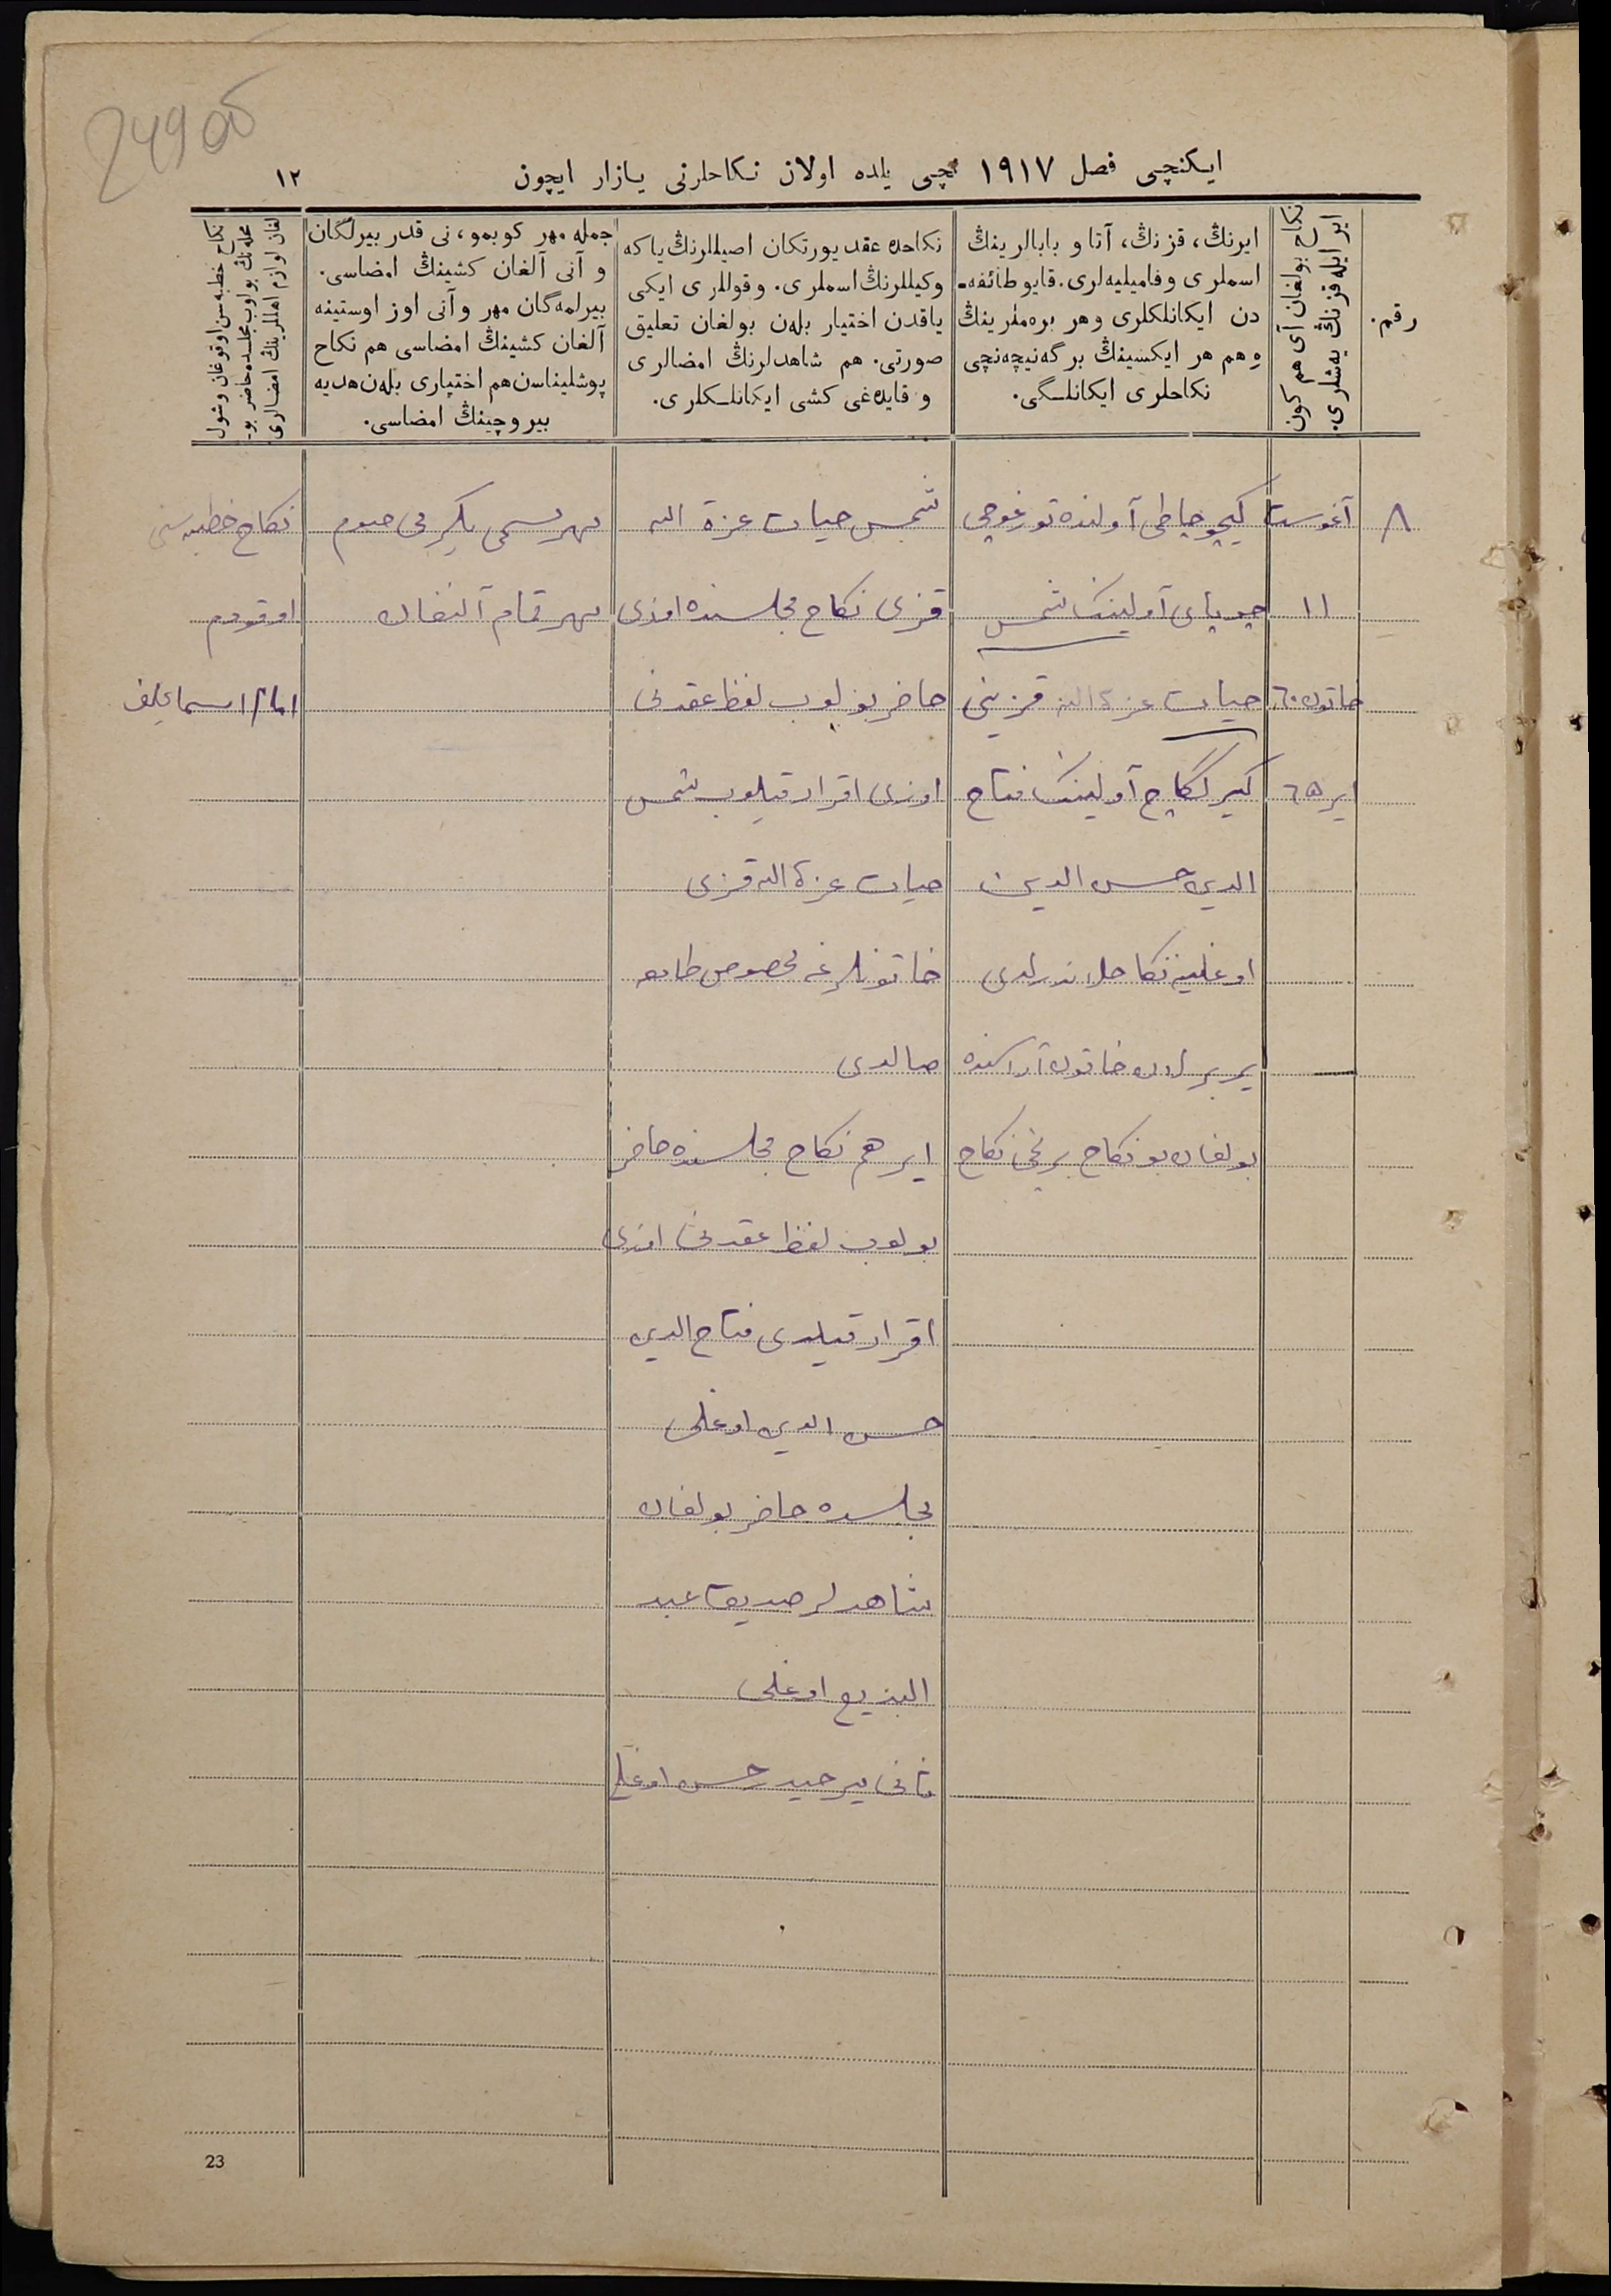 249 об
ایکنچی فصل ١٩١٧ نچی یلده اولان نکاحلرنی یازار ایچون
١٢
رقم.
نکاح بولغان آی هم کون
ایر ایله قزنڭ یه‌شلری.
ایرنڭ، قزنڭ، آتا و بابالرینڭ
اسملری وفامیلیه‌لری. قایو طائفه‌-
دن ایکانلکلری وهر بره‌ملرینڭ
وهم هر ایکسینڭ بر گه‌نیچه‌نچی
نکاحلری ایکانلگی.
نکاحده عقد یورتکان اصیللرنڭ یاکه
وکیللرنڭ اسملری. وقوللری ایکی
یاقدن اختیار بله‌ن بولغان تعلیق
صورتی. هم شاهدلرنڭ امضالری
و قایده‌غی کشی ایکانلکلری.
جمله مهر کوبمو، نی قدر بیرلگان
و آنی آلغان کشینڭ امضاسی.
بیرلمه‌گان مهر و آنی اوز اوستینه
آلغان کشینڭ امضاسی هم نکاح
پوشلیناسن هم اختیاری بله‌ن هدیه
بیروچینڭ امضاسی.
نکاح خطبه‌سن اوقوغان وشول
محله‌نڭ بولوب مجلسده حاضر بو-
لغان لوازم اهللرینڭ امضالری
٨
آغوست
١١
خاتون ٦٠
ایر ٦٥
کیچو چاطی آولنده تورغوچی
چوپای آولینڭ شمس
حیات عزة الله قزینی
آولینڭ فتاح
الدین حسن الدین
اوغلینه نکاحلاندرلدی
بربرلرن خاتون آراسنده
بولغان بو نکاح برنچی نکاح
شمس حیات عزة الله
قزی نکاح مجلسنده اوزی
حاضر بولوب لفظ عقدنی
اوزی اقرار قیلوب شمس
حیات عزة الله قزی
خاتونلرغه مخصوص طامغه
صالدی
ایر هم نکاح مجلسنده حاضر
بولوب لفظ عقدنی اوزی
اقرار قیلدی فتاح الدین
حسن الدین اوغلی
مجلسده حاضر بولغان
شاهدلر صدیق عبد
البدیع اوغلی
ثانی میرحیدر حسن اوغلی
مهر مسمی یگرمی صوم
مهر تمام آلنغان
نکاح خطبه‌سنی
اوقودم
امام اسماعیلف
23